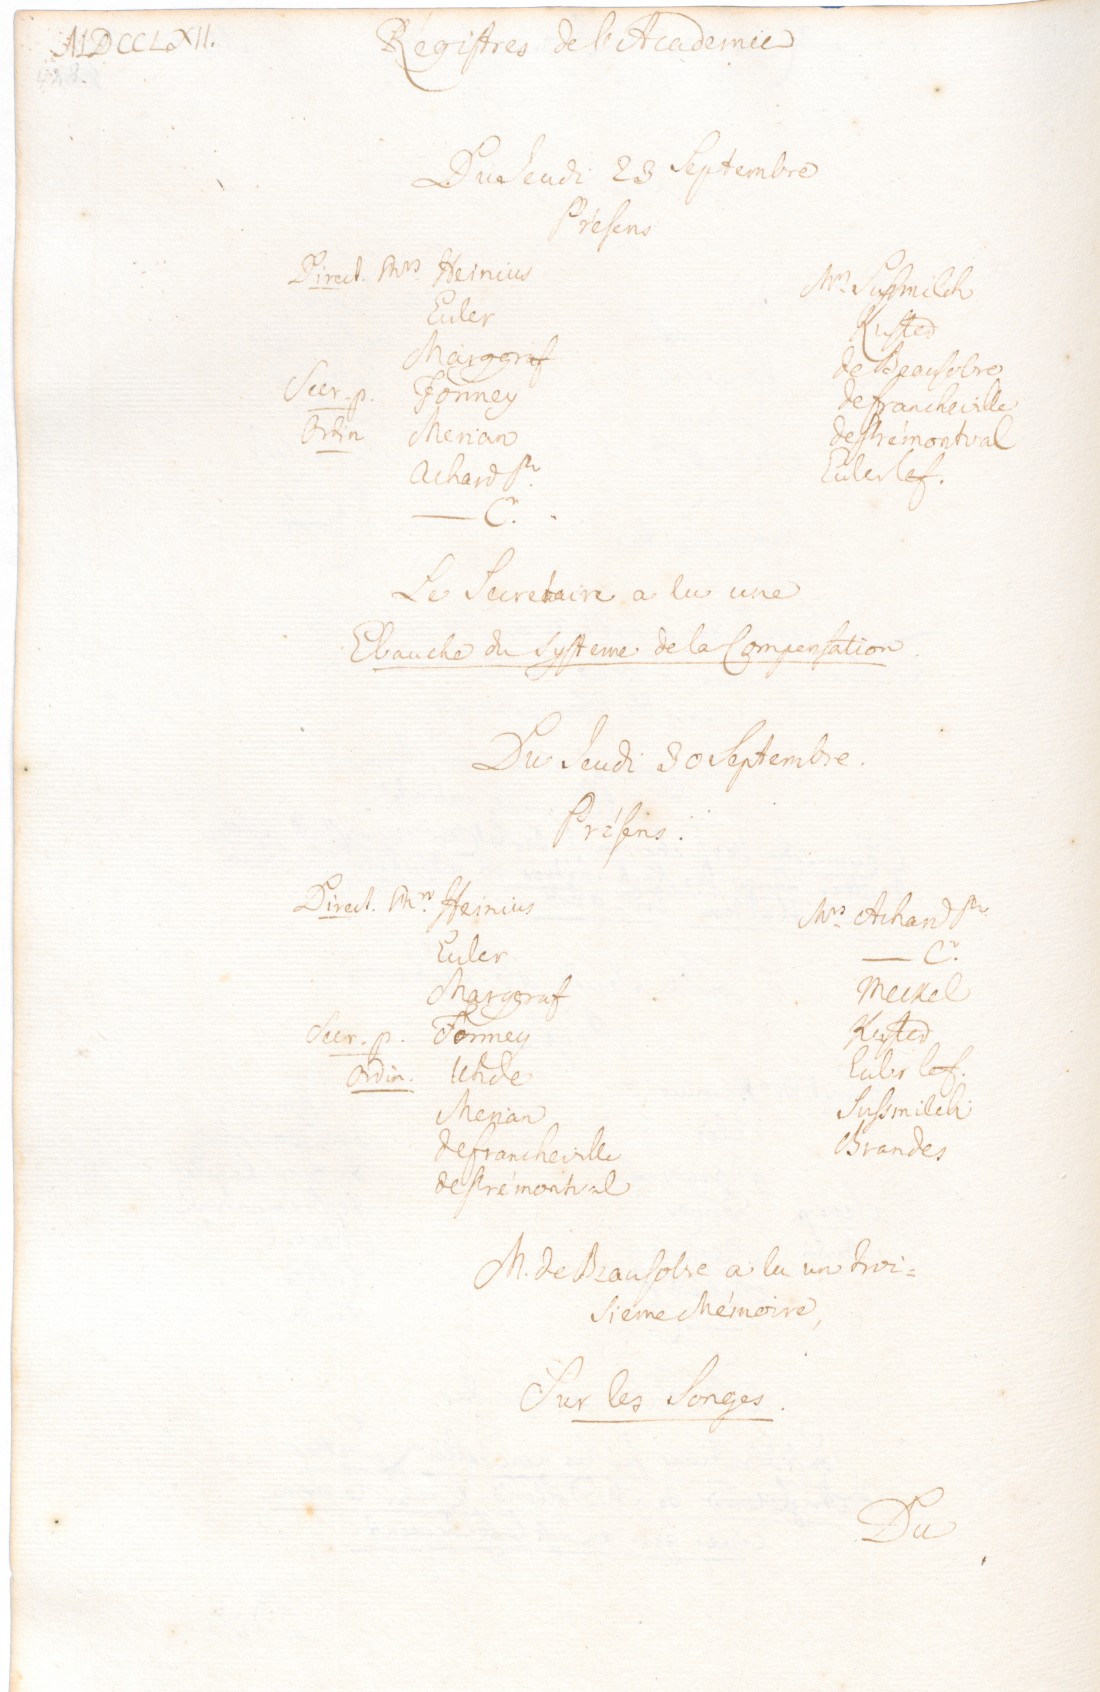 MDCCLXII.
Régistres de l'Academie
428.
Du Jeudi 23 Septembre
Présens
Direct. Mrs Heinius
Euler
Marggraf
Secr. p. Formey
Ordin Merian
Achard Pr.
— Cr.
Mrs. Sussmilch
Kusted
de Beausobre
de Francheville
de Prémontval
Euler le f.
Le Secretaire a lu une
Ebauche du Systeme de la Compensation.
Du Jeudi 30 Septembre.
Présens.
Direct. Mrs. Heinius
Euler
Marggraf
Secr. p. Formey
Ordin. Uhde
Merian
de Francheville
de Prémontval
Mrs. Achard Pr.
— Cr.
Meckel
Kusted
Euler le f.
Sussmilch
Brandes
M. de Beausobre a lu un troi=
sieme Mémoire,
Sur les Songes.
Du